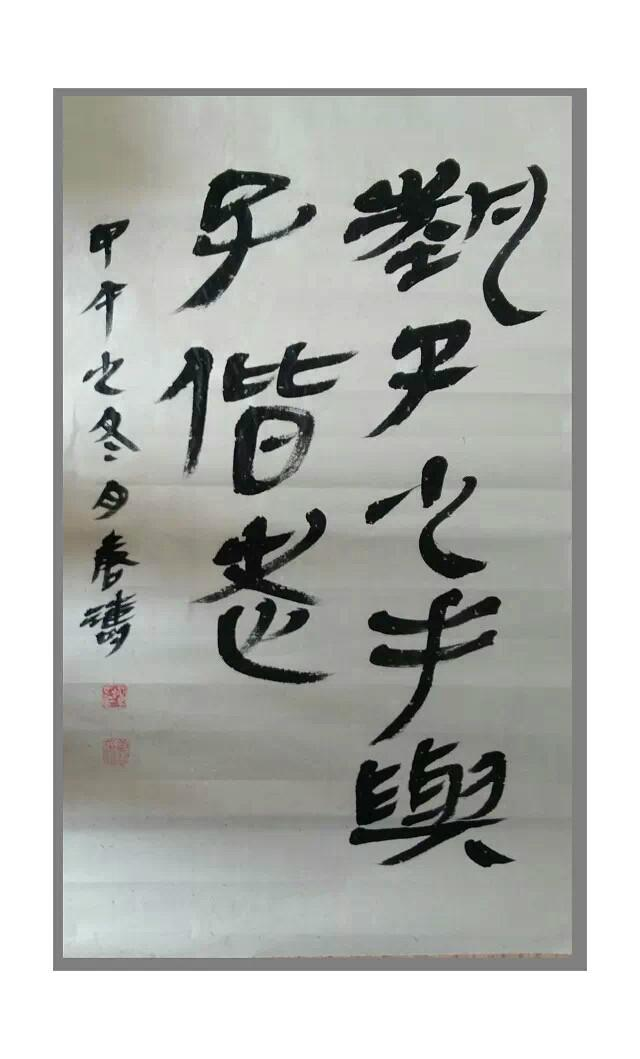 執子之手與
子偕老
甲午之冬月春濤